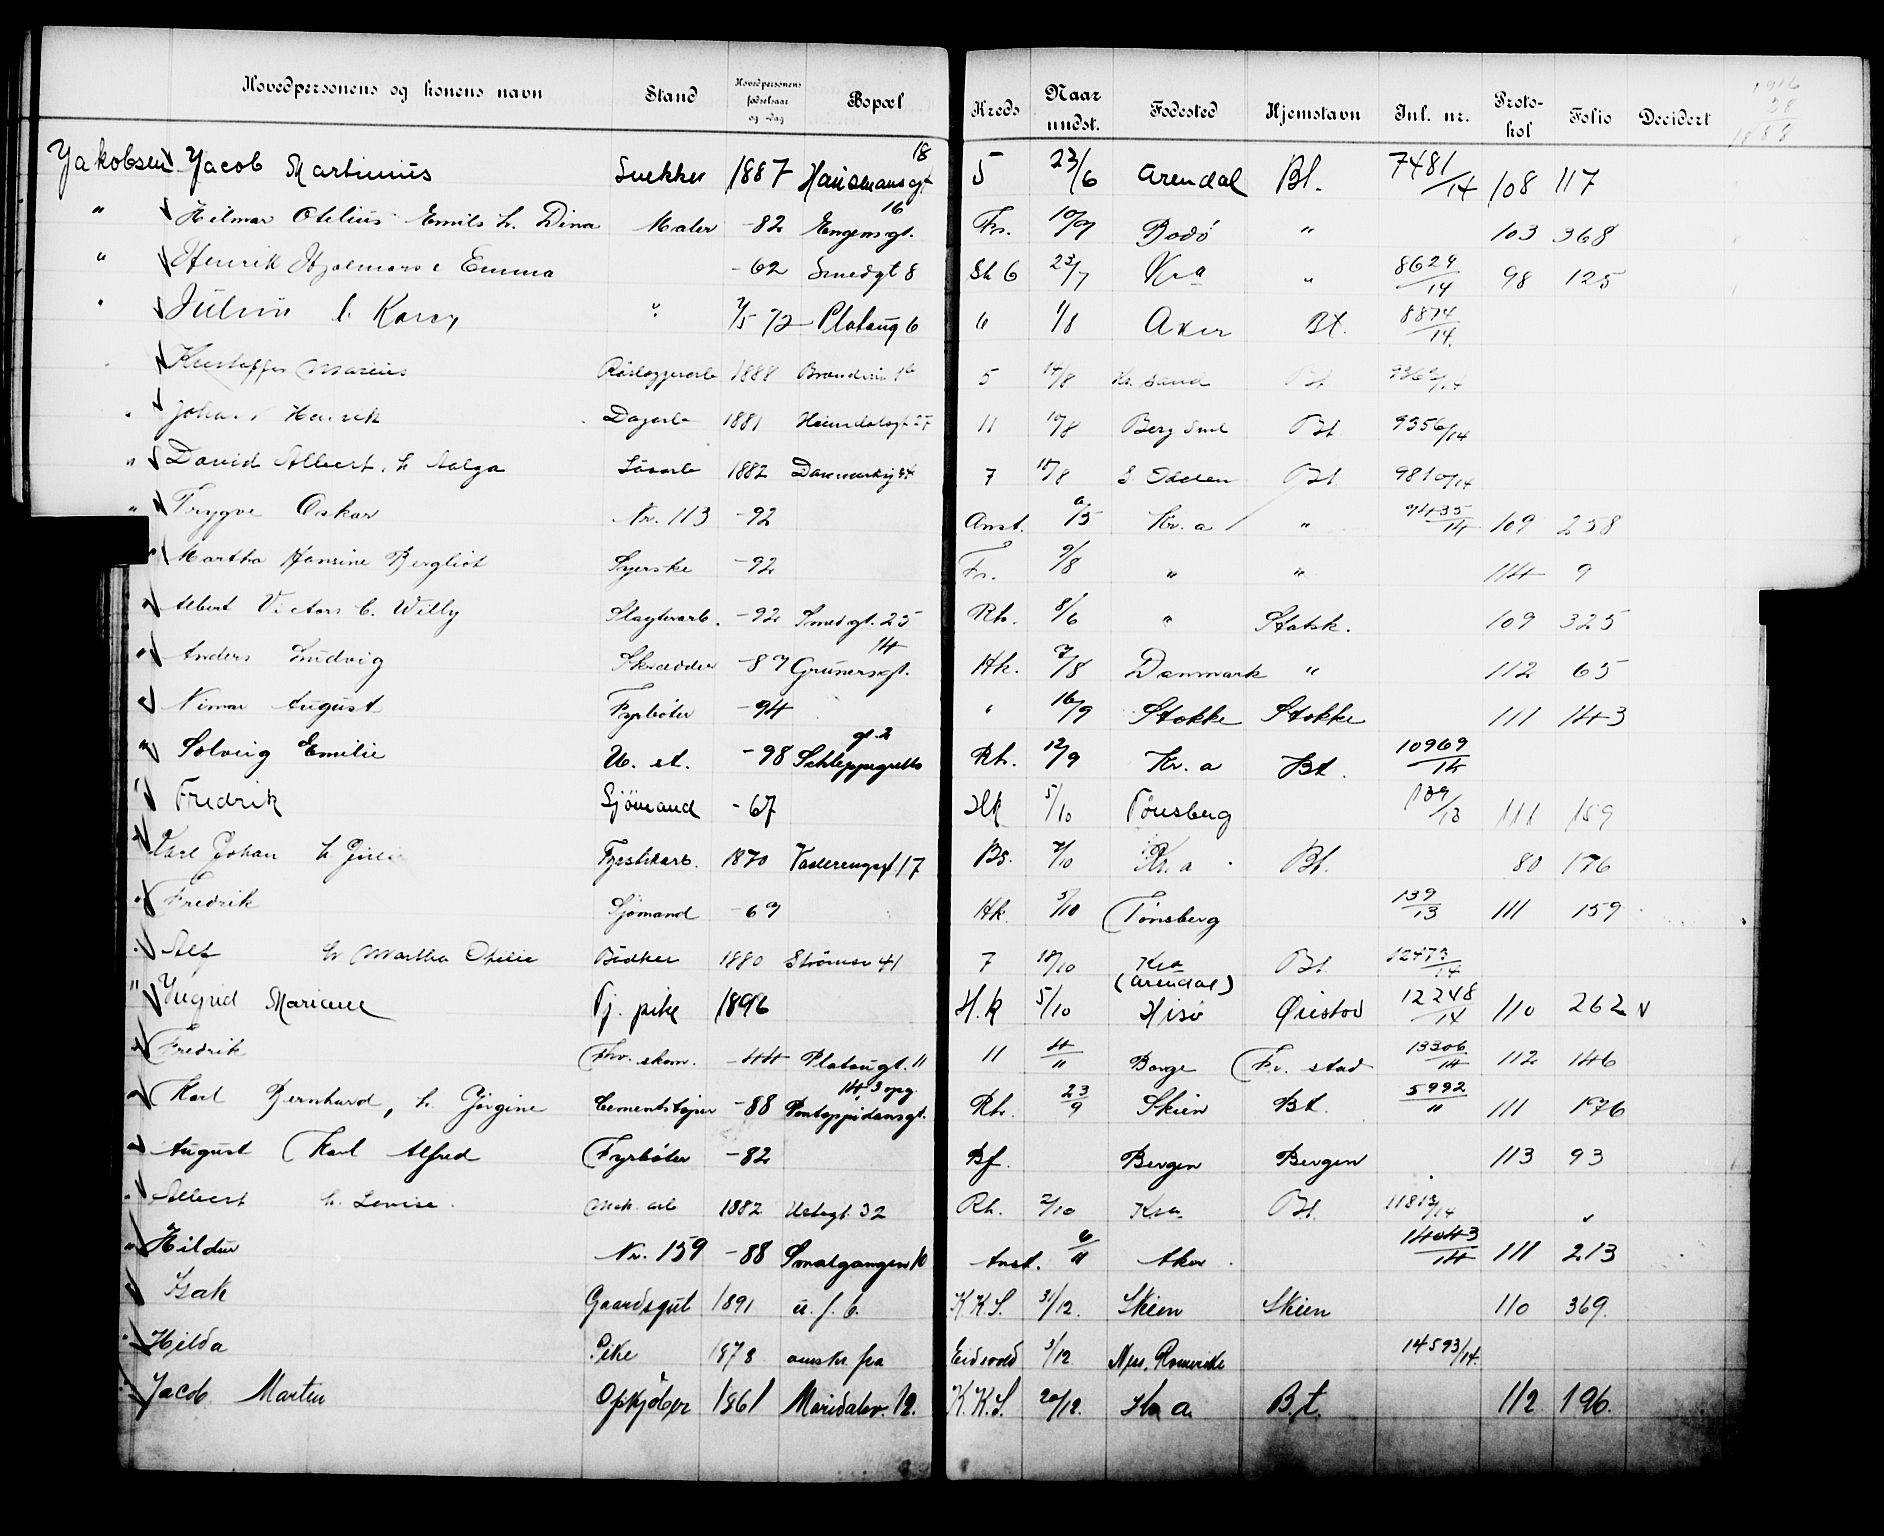 Hovedpersonens og konens navn Stand Hovedpersonens fødselsaar og -dag Bopæl Kreds Naar undst. Fødested Hjemstavn Inl. nr. Protokol Folio Decidert
1916
28
1888
Jakobsen Jacob Martinius Snekker 1887 Hausmansgt 18 5 23/6 Arendal Bt. 7481/14 108 117
" Hilmar Otelius Emils h. Dina Maler -82 Engensgt. 16 Fr. 10/7 Bodö " 103 368
" Henrik Hjalmars Emma -62 Smedgt 8 Sk 6 23/7 Kra " 8629/14 98 125
" Julius h. Karen " 7/5 72 Platoug 6 6 1/8 Aker Bt. 8874/14
Kristoffer Marius Rörleggerarb 1888 5 14/8 Kr. sand Bt
" Johan Henrik Dagarb 1881 Heimdalsgt 27 11 10/8 Berg Sml Bt 9356/14
" David Albert h. Aalga Lösarb 1882 Danmarksg 34 7 18/8 S Odalen Bt 9810/14
" Trygve Oskar Nr. 113 -92 Anst. 6/5 Kr. a " 9435/14 109 258
" Martha Hansine Bergliot Syerske -92 Fr. 9/8 " " 114 9
" Albert Victors h. Willy Slagterarb. -92 Smedgt. 25 Rh. 8/6 " Statsk. 109 325
" Anders Ludvig Skrædder -87 Grünersgt. 14 Hk. 7/8 Danmark " 112 65
" August Fyrböter -94 " 16/9 Stokke Stokke 111 143
" Solveig Emilie U. st. -98 Schleppegrells gt. 2 Rh. 12/9 Kr. a Bt. 10969/14
" Fredrik Sjömand -67 Hk 5/10 Tönsberg 139/13 111 159
" Karl Johan h Fyrstikarb. 1870 Vaalerengagt 17 Bs. 7/10 Kr. a Bt. 80 176
" Fredrik Sjömand -67 Hk. 5/10 Tönsberg 139/13 111 159
" Alf h Martha Otelie Bödker 1880 Strömsv 41 7 18/10 Kra Bt 12473/14
" Ingrid Marianne Tj. pike 1896 H.k 5/10 (Arendal) Hisö Öiestad 12248/14 110 262 v
" Fredrik Fhv. skom. -44 Platougt. 11 11 4/11 Borge Fr. stad 13306/14 112 146
" Karl Bernhard, h. Jörgine Cementstöper -88 Pontoppidansgt. 14, 3 opg Rh. 23/9 Skien Bt. 5992/11 111 176
" August Karl Alfred Fyrböter -82 Bf. Bergen Bergen 113 93
" Albert h. Lovise Mek. arb 1882 Ustagt. 32 Rh. 2/10 Kra Bt. 11813/14
" Hildur Nr. 159 -88 Smalgangen 10 Anst. 6/11 Aker 14043/14 111 213
Isak Gaardsgut 1891 u. f. b. K.K.S. 31/12 Skien Skien 110 369.
" Hilda Pike 1878 amstr. fra Eidsvold 3/12. Nes, Romerike 14593/14.
" Jacob Martin Opkjöber 1861 Maridalsv. 12. K.K.S. 20/12. Kr a. B.t. 112 196.